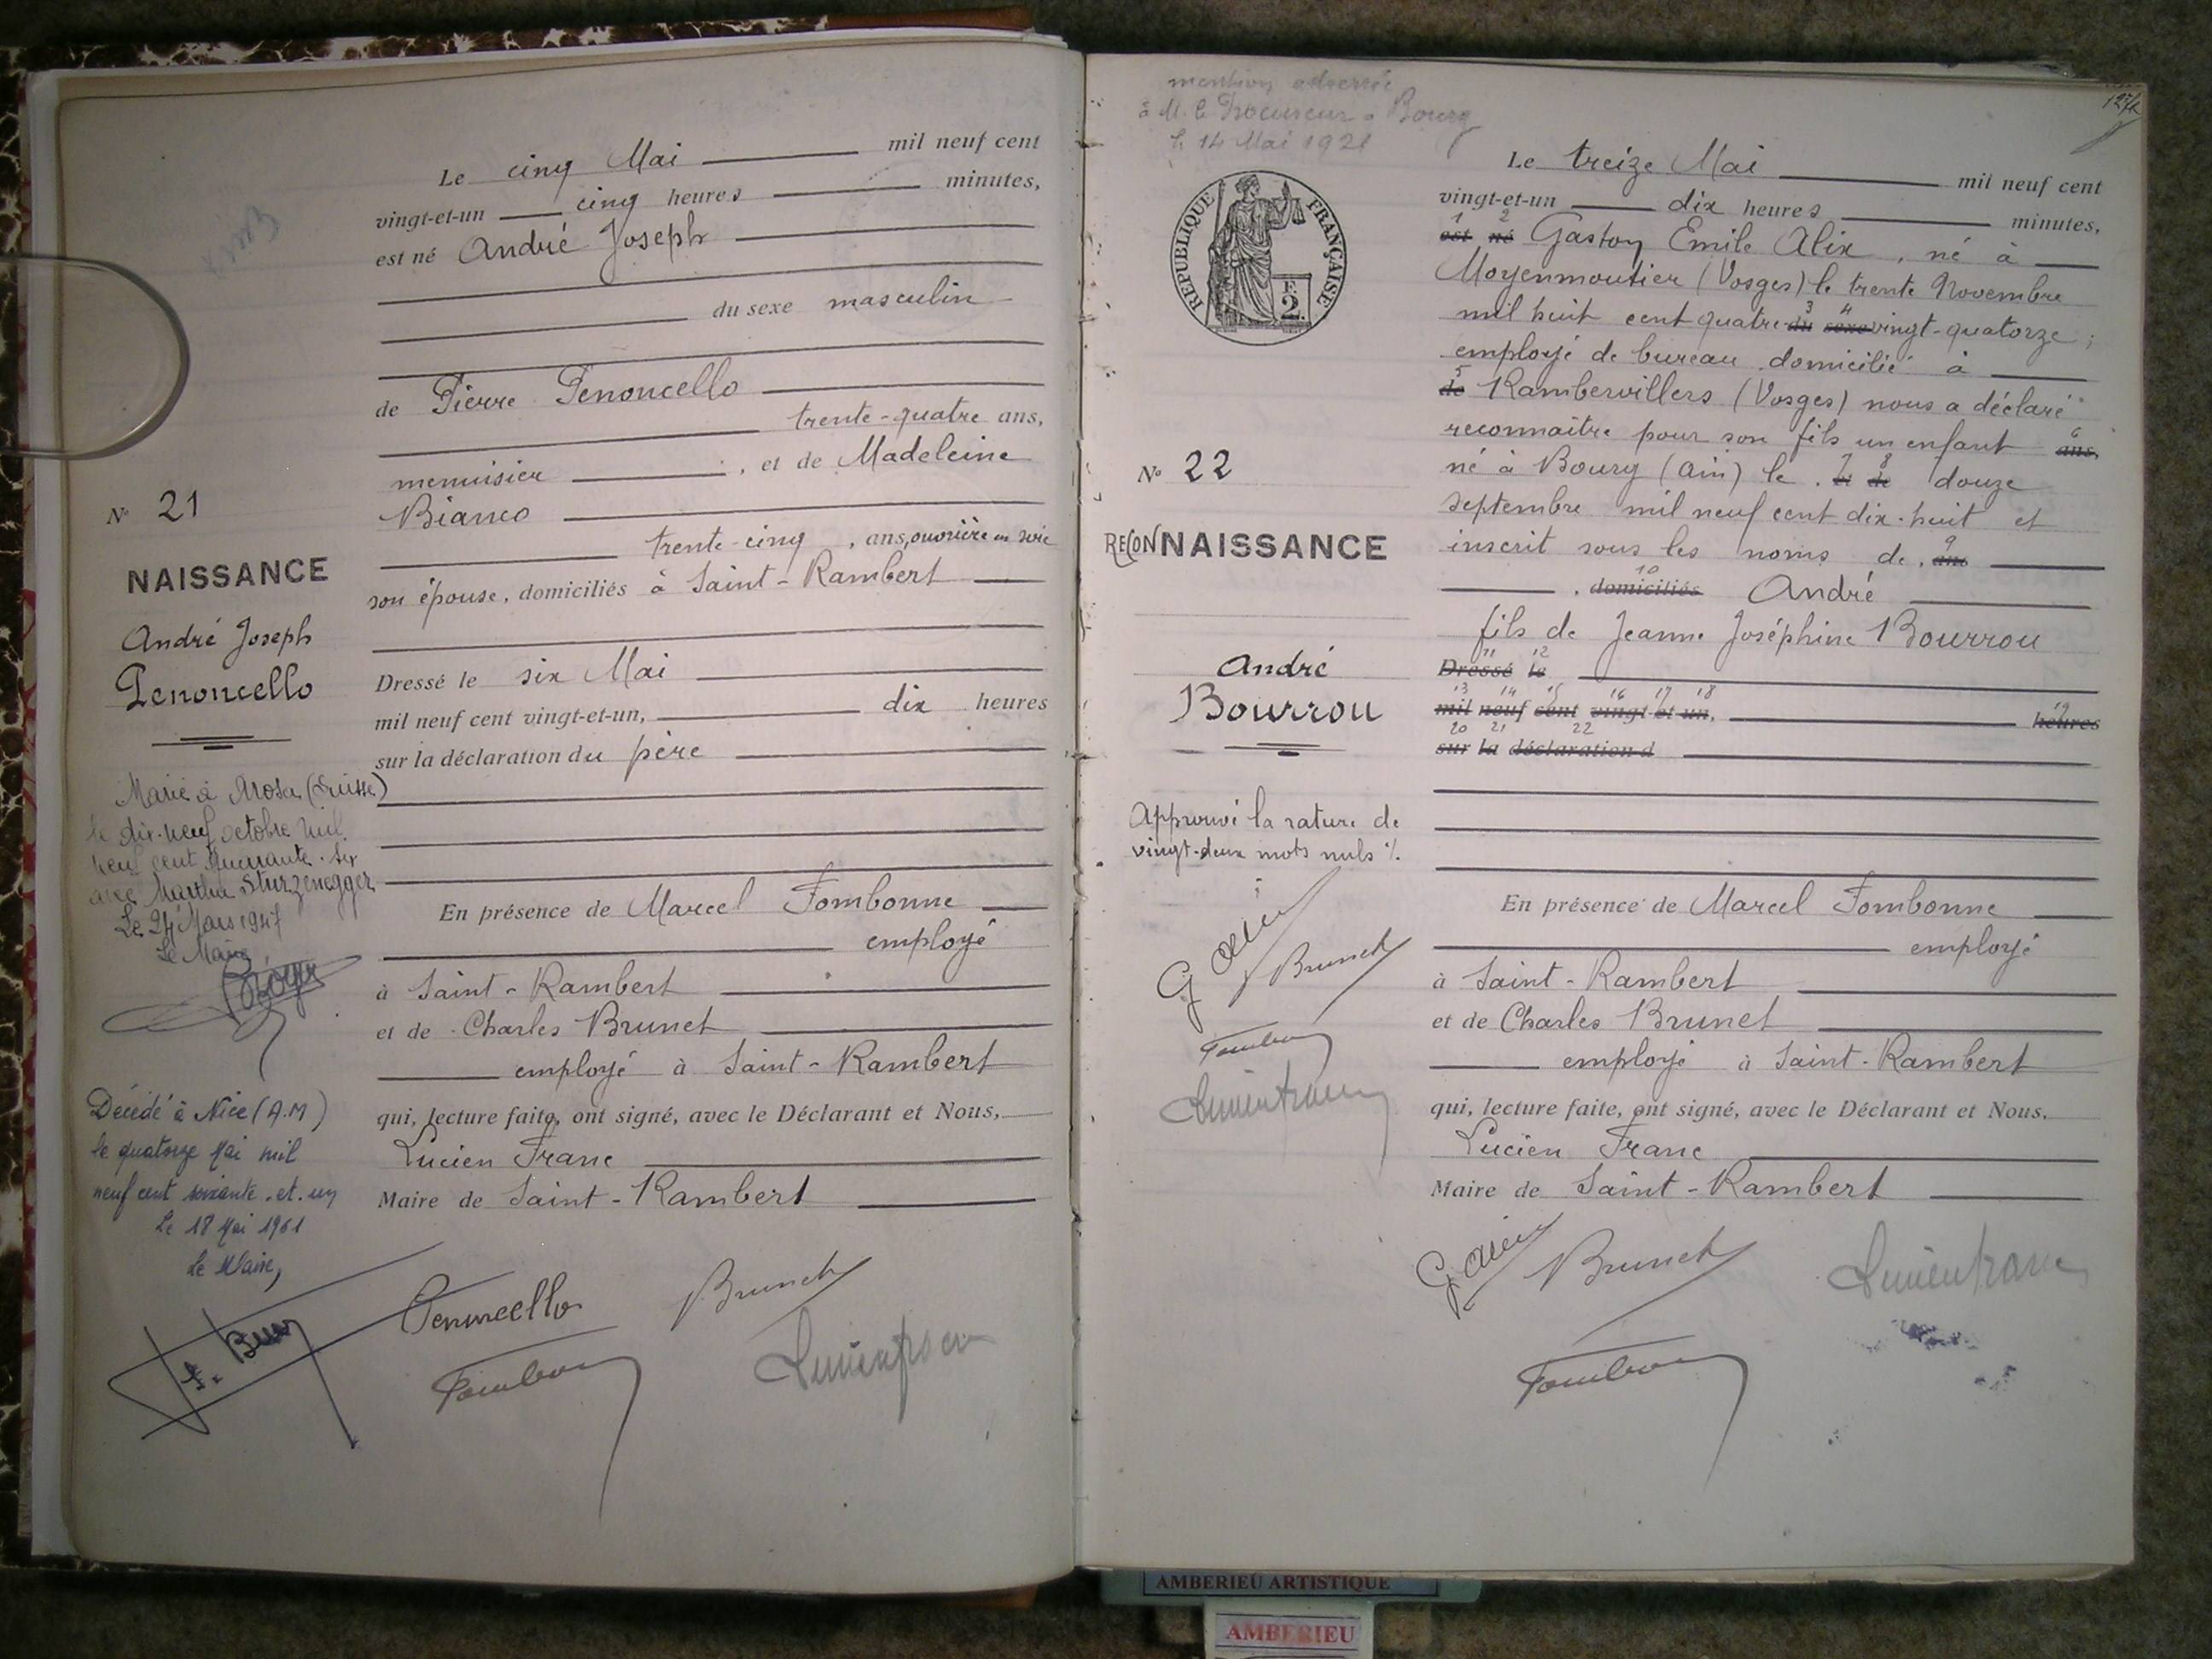 Le cinq Mai mil neuf cent
vingt-et-un cinq heures minutes,
est né André Joseph
du sexe masculin
de Pierre Penoncello
trente-quatre ans,
menuisier , et de Madeleine
Bianco
trente-cinq , ans, ouvrière en soie
son épouse, domiciliés à Saint-Rambert
Dressé le six Mai
mil neuf cent vingt-et-un, dix heures
sur la déclaration du père
En présence de Marcel Fombonne
employé
à Saint-Rambert
et de Charles Brunet
employé à Saint-Rambert
qui, lecture faite, ont signé, avec le Déclarant et Nous,
Lucien Franc
Maire de Saint-Rambert
Penoncello
Brunet
N° 21
NAISSANCE
André Joseph
Penoncello
Marié à Arosa (Suisse)
le dix-neuf octobre mil
neuf cent quarante-six
avec Martha Sturzenegger
Le 24 Mars 1947
Le Maire,
Décédé à Nice (A.M)
le quatorze Mai mil
neuf cent soixante-et-un
Le 18 Mai 1961
Le Maire,
mention adressée
à M. le Procureur à Bourg
le 14 Mai 1921
REPUBLIQUE FRANÇAISE
F.
2.
127/2
Le treize Mai mil neuf cent
vingt-et-un dix heures minutes,
1 2
est né Gaston Emile Alix, né à
Moyenmoutier (Vosges) le trente Novembre
3 4
mil huit cent quatre-du sexe vingt-quatorze ;
employé de bureau domicilié à
5
de Rambervillers (Vosges) nous a déclaré
6
reconnaître pour son fils un enfant ans,
7 8
né à Bourg (Ain) le . et de douze
septembre mil neuf cent dix-huit et
9
inscrit sous les noms de , ans
10
, domiciliés André
fils de Jeanne Joséphine Bourrou
11 12
Dressé le
13 14 15 16 17 18
mil neuf cent vingt-et-un, heures
19
20 21 22
sur la déclaration d
En présence de Marcel Fombonne
employé
à Saint-Rambert
et de Charles Brunet
employé à Saint-Rambert
qui, lecture faite, ont signé, avec le Déclarant et Nous,
Lucien Franc
Maire de Saint-Rambert
G Alix
Brunet
N° 22
RECONNAISSANCE
André
Bourrou
Approuvé la rature de
vingt-deux mots nuls ./.
G Alix
Brunet
AMBERIEU ARTISTIQUE
AMBERIEU